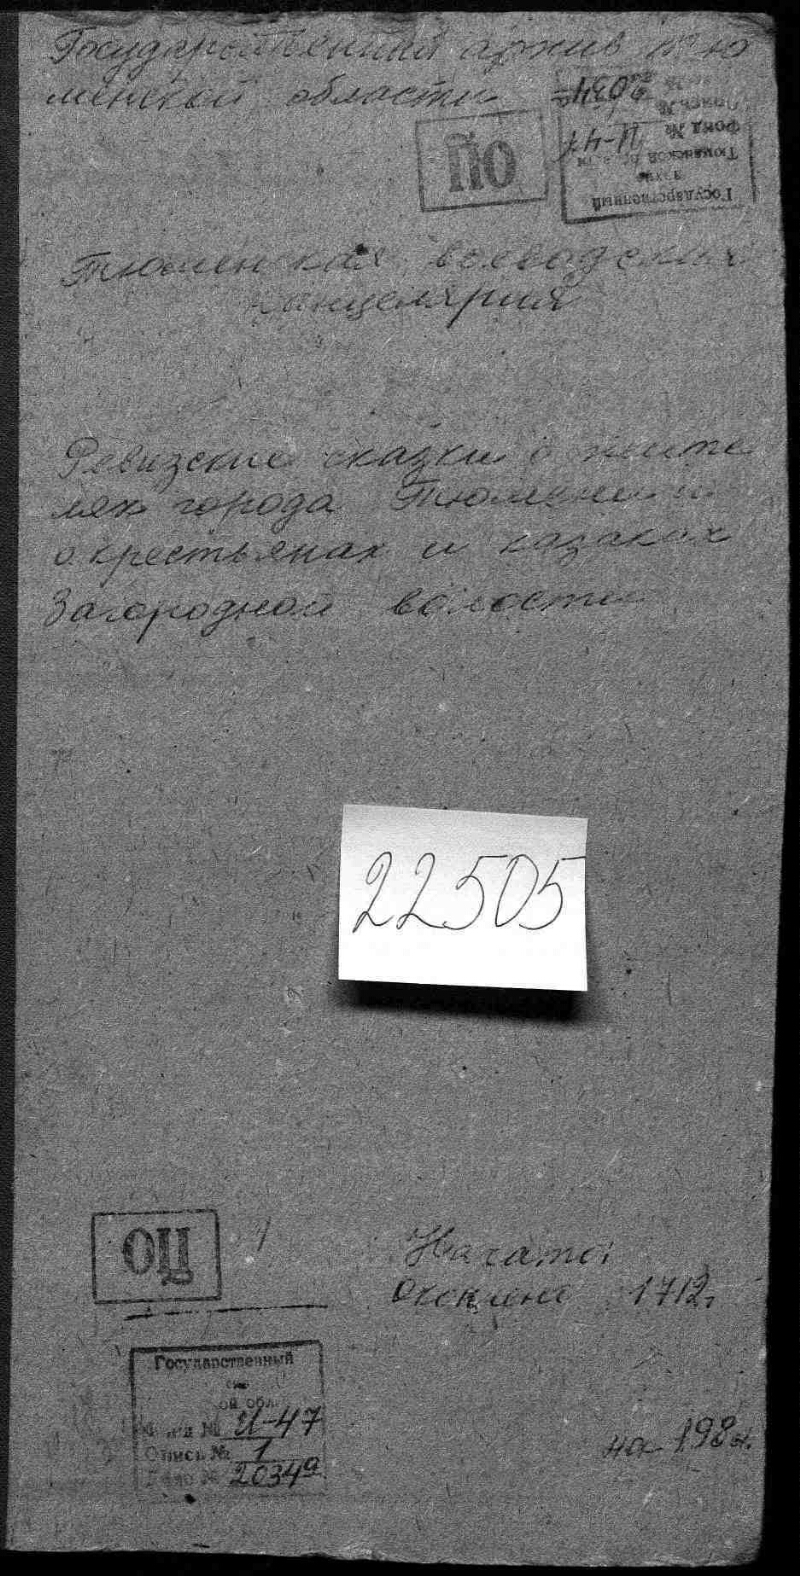 Государственный архив Тю
менской области
2034а
Опись №
Фонд № И-47
Тюменской области
Государственный
ОЦ
Тюменская воеводская
канцелярия
Ревизские сказки о жите
лях города Тюмени и
о крестьянах и казаках
Загородной волости
22505
ОЦ 1
Начато:
Окончено 1712г
Государственный
ой обл
Фонд № И-47
Опись № 1
Дело № 2034а
на 198 л.